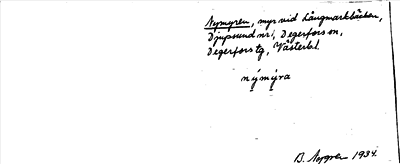 Nymyren, myr vid Långmarkbäcken,
Djupsund nr 1, Degerfors sn,
Degerfors tg, Västerbl.
nýmýra
B. Nygren 1934.